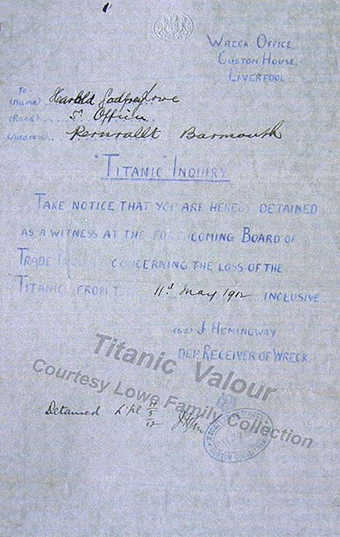 WRECK OFFICE,
CUSTOM HOUSE,
LIVERPOOL
To
(NAME) Harold Godfrey Lowe
(RANK) 5th Officer
(ADDRESS) Penrallt Barmouth
"TITANIC" INQUIRY
TAKE NOTICE THAT YOU ARE HEREBY DETAINED
AS A WITNESS AT THE FORTHCOMING BOARD OF
TRADE INQUIRY CONCERNING THE LOSS OF THE
TITANIC FROM 11th May 1912 INCLUSIVE
J. HEMINGWAY
DEP. RECEIVER OF WRECK
Titanic Valour
Courtesy Lowe Family Collection
Detained L'pl 11/5/12